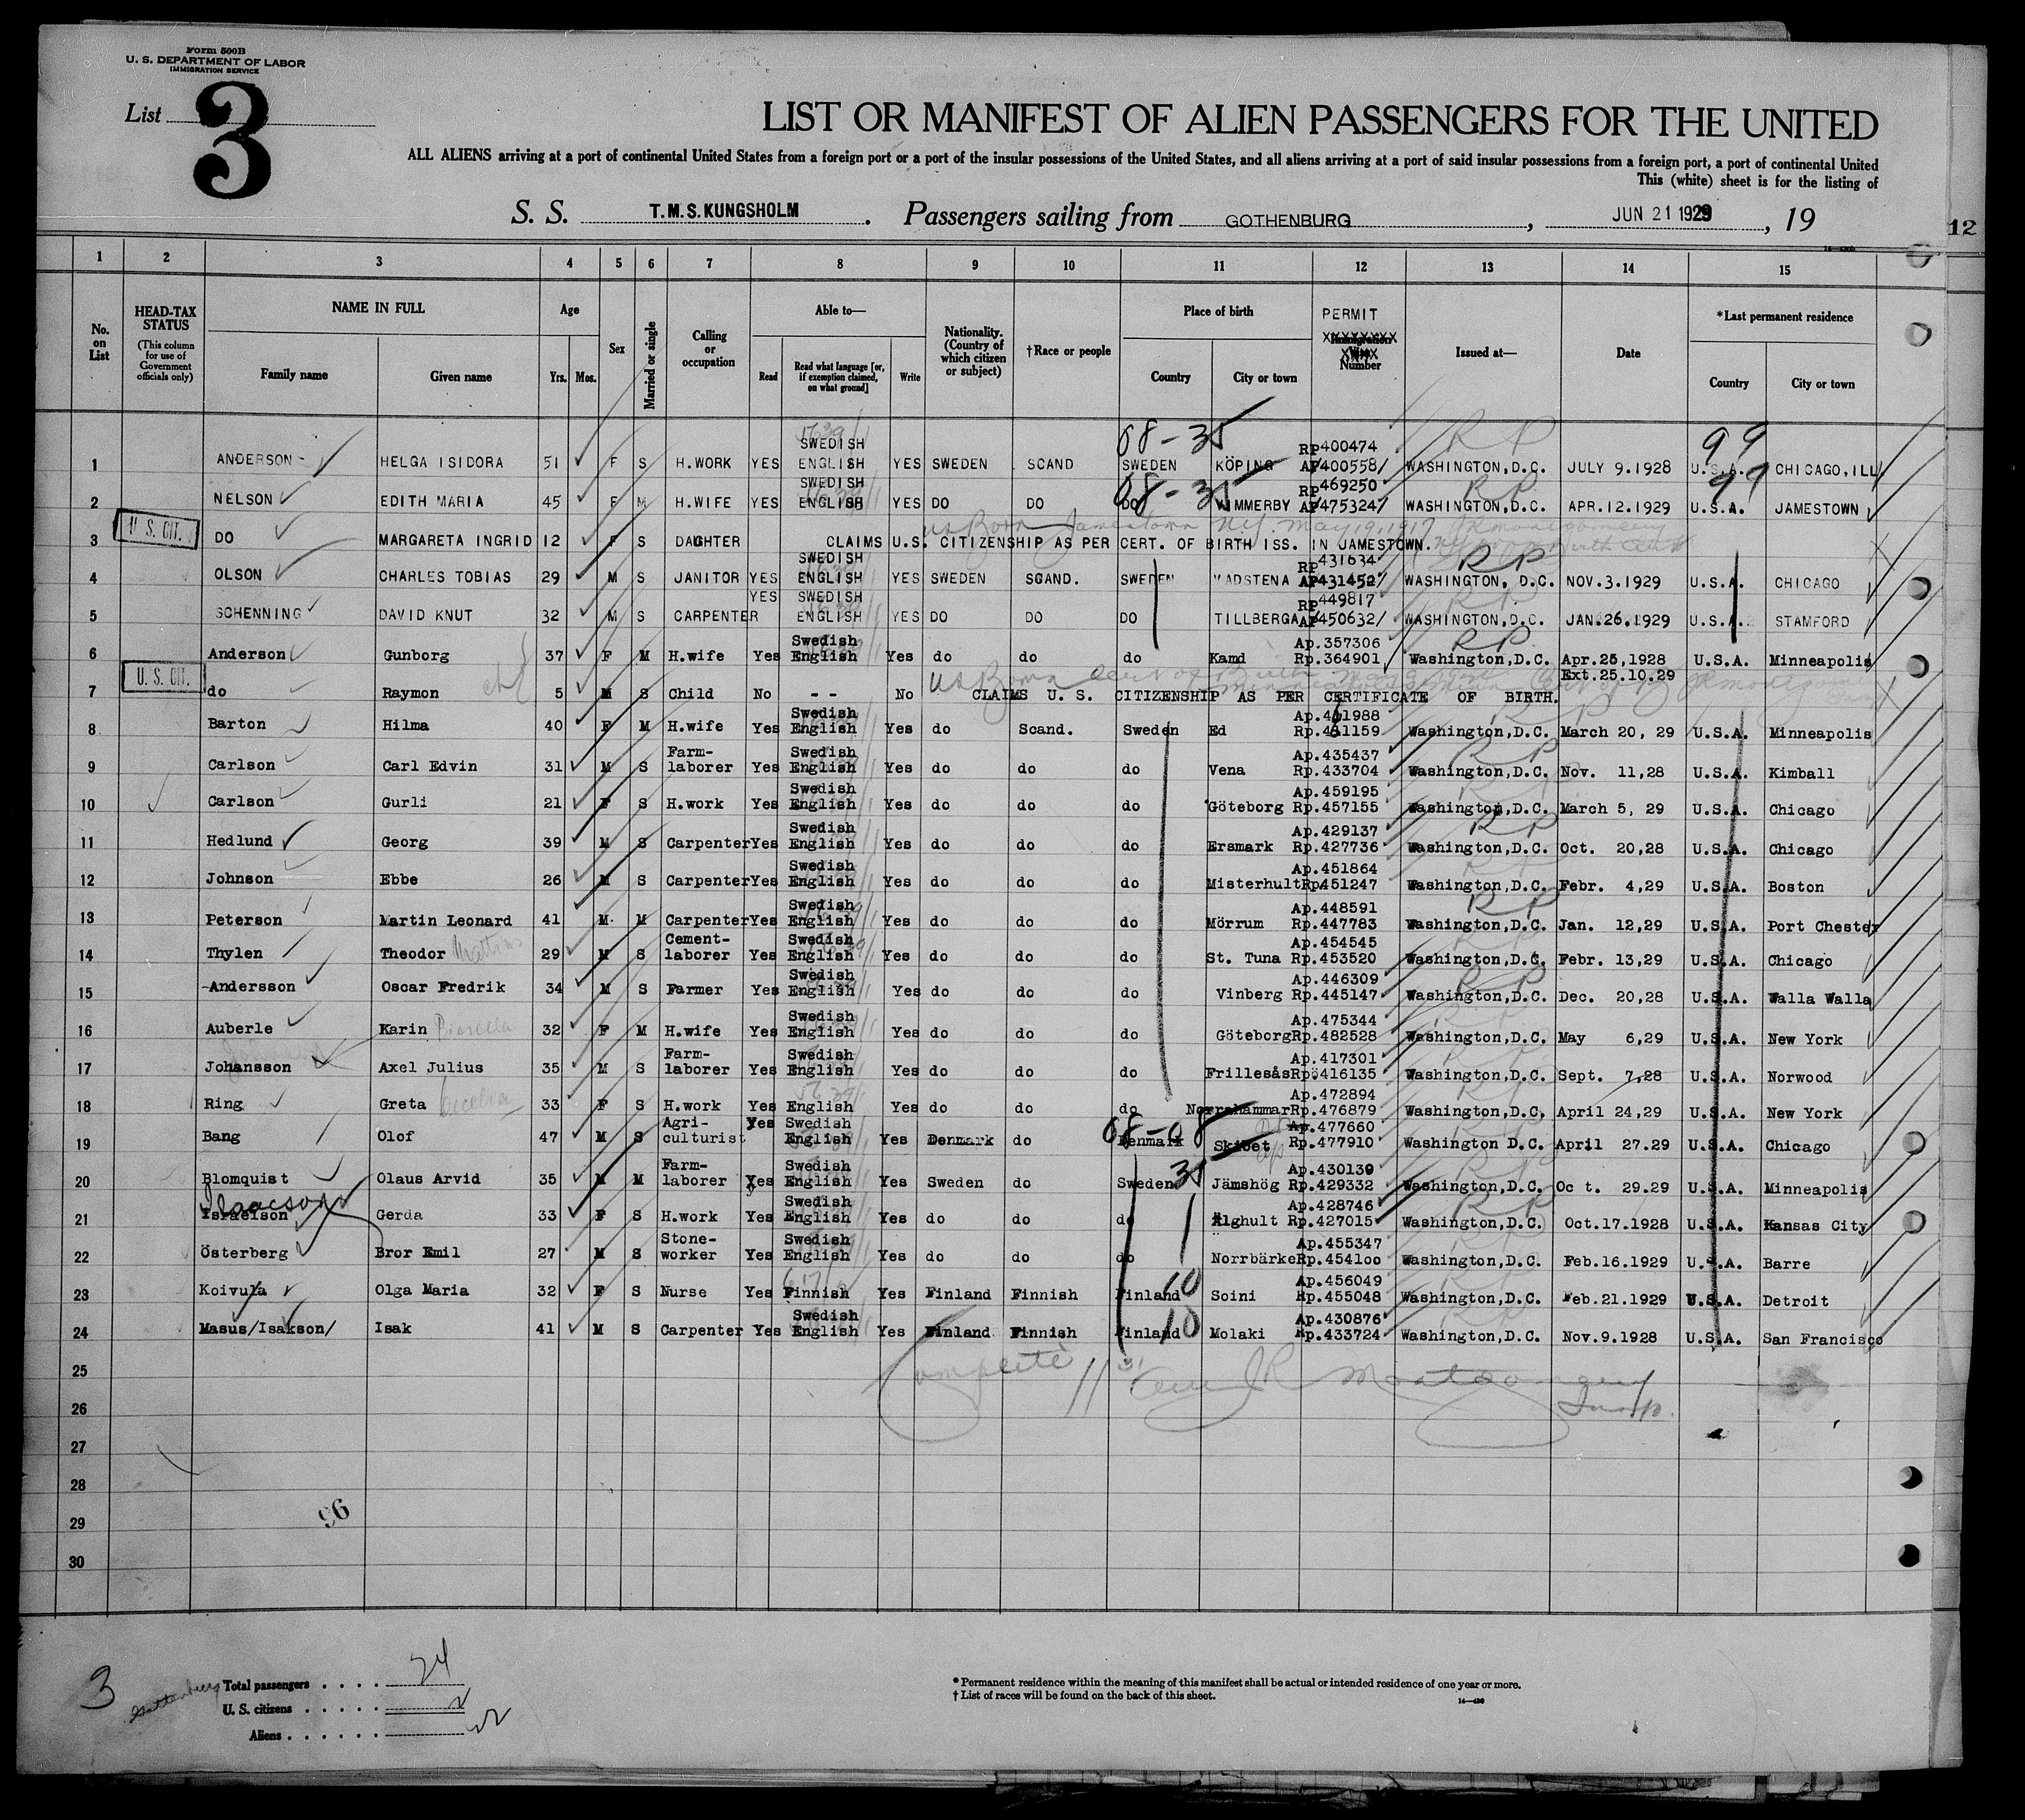 Form 500B
U. S. DEPARTMENT OF LABOR
IMMIGRATION SERVICE
List 3
LIST OR MANIFEST OF ALIEN PASSENGERS FOR THE UNITED
ALL ALIENS arriving at a port of continental United States from a foreign port or a port of the insular possessions of the United States, and all aliens arriving at a port of said insular possessions from a foreign port, a port of continental United
This (white) sheet is for the listing of
S. S. T.M.S. KUNGSHOLM. Passengers sailing from GOTHENBURG, JUN 21 1929, 19
12
1 2 3 4 5 6 7 8 9 10 11 12 13 14 15
No. on List
HEAD-TAX STATUS (This column for use of Government officials only)
NAME IN FULL Family name Given name
Age Yrs. Mos.
Sex
Married or single
Calling or occupation
Able to— Read Read what language [or, if exemption claimed, on what ground] Write
Nationality. (Country of which citizen or subject)
†Race or people
Place of birth Country City or town
PERMIT Number
Issued at—
Date
*Last permanent residence Country City or town
08-35 99
1 ANDERSON HELGA ISIDORA 51 F S H.WORK YES SWEDISH ENGLISH YES SWEDEN SCAND SWEDEN KÖPING RP400474 AP400558/ WASHINGTON,D.C. JULY 9.1928 U.S.A. CHICAGO,ILL
08-35 99
2 NELSON EDITH MARIA 45 F M H.WIFE YES SWEDISH ENGLISH YES DO DO DO WIMMERBY RP469250 AP475324/ WASHINGTON,D.C. APR.12.1929 U.S.A. JAMESTOWN
US Born Jamestown NY. May 19, 1917
U. S. CIT.
3 DO MARGARETA INGRID 12 F S DAGHTER CLAIMS U.S. CITIZENSHIP AS PER CERT. OF BIRTH ISS. IN JAMESTOWN.
4 OLSON CHARLES TOBIAS 29 M S JANITOR YES SWEDISH ENGLISH YES SWEDEN SCAND. SWEDEN VADSTENA RP431634 AP431452 WASHINGTON, D.C. NOV.3.1929 U.S.A. CHICAGO
5 SCHENNING DAVID KNUT 32 M S CARPENTER YES SWEDISH ENGLISH YES DO DO DO TILLBERGA RP449817 AP450632/ WASHINGTON,D.C. JAN.26.1929 U.S.A. STAMFORD
6 Anderson Gunborg 37 F M H.wife Yes Swedish English Yes do do do Kamd Ap.357306 Rp.364901 Washington,D.C. Apr.25,1928 Ext.25.10.29 U.S.A. Minneapolis
U. S. CIT.
7 do Raymon 5 M S Child No - - No CLAIMS U. S. CITIZENSHIP AS PER CERTIFICATE OF BIRTH.
8 Barton Hilma 40 F M H.wife Yes Swedish English Yes do Scand. Sweden Ed Washington,D.C. March 20, 29 U.S.A. Minneapolis
9 Carlson Carl Edvin 31 M S Farm-laborer Yes Swedish English Yes do do do Vena Ap.435437 Rp.433704 Washington,D.C. Nov. 11,28 U.S.A. Kimball
10 Carlson Gurli 21 F S H.work Yes Swedish English Yes do do do Göteborg Ap.459195 Rp.457155 Washington,D.C. March 5, 29 U.S.A. Chicago
11 Hedlund Georg 39 M S Carpenter Yes Swedish English Yes do do do Ersmark Ap.429137 Rp.427736 Washington,D.C. Oct. 20,28 U.S.A. Chicago
12 Johnson Ebbe 26 M S Carpenter Yes Swedish English Yes do do do Misterhult Ap.451864 Rp.451247 Washington,D.C. Febr. 4,29 U.S.A. Boston
13 Peterson Martin Leonard 41 M M Carpenter Yes Swedish English Yes do do do Mörrum Ap.448591 Rp.447783 Washington,D.C. Jan. 12,29 U.S.A. Port Chester
14 Thylen Theodor 29 M S Cement-laborer Yes Swedish English Yes do do do St. Tuna Ap.454545 Rp.453520 Washington,D.C. Febr. 13,29 U.S.A. Chicago
15 Andersson Oscar Fredrik 34 M S Farmer Yes Swedish English Yes do do do Vinberg Ap.446309 Rp.445147 Washington,D.C. Dec. 20,28 U.S.A. Walla Walla
16 Auberle Karin 32 F M H.wife Yes Swedish English Yes do do do Göteborg Ap.475344 Rp.482528 Washington,D.C. May 6,29 U.S.A. New York
17 Johansson Axel Julius 35 M S Farm-laborer Yes Swedish English Yes do do do Frillesås Ap.417301 Rp.416135 Washington,D.C. Sept. 7,28 U.S.A. Norwood
18 Ring Greta Cecelia 33 F S H.work Yes English Yes do do do Norrahammar Ap.472894 Rp.476879 Washington,D.C. April 24,29 U.S.A. New York
08-08
19 Bang Olof 47 M S Agri-culturist Yes Swedish English Yes Denmark do Denmark Skibet Ap.477660 Rp.477910 Washington D.C. April 27.29 U.S.A. Chicago
35
20 Blomquist Olaus Arvid 35 M M Farm-laborer Yes Swedish English Yes Sweden do Sweden Jämshög Ap.430139 Rp.429332 Washington,D.C. Oc t. 29.29 U.S.A. Minneapolis
Isaacson
21 Israelson Gerda 33 F S H.work Yes Swedish English Yes do do do Älghult Ap.428746 Rp.427015 Washington,D.C. Oct.17.1928 U.S.A. Kansas City
22 Österberg Bror Emil 27 M S Stone-worker Yes Swedish English Yes do do do Norrbärke Ap.455347 Rp.454100 Washington,D.C. Feb.16.1929 U.S.A. Barre
10
23 Koivula Olga Maria 32 F S Nurse Yes Finnish Yes Finland Finnish Finland Soini Ap.456049 Rp.455048 Washington,D.C. Feb.21.1929 U.S.A. Detroit
10
24 Masus/Isakson/ Isak 41 M S Carpenter Yes Swedish English Yes Finland Finnish Finland Molaki Ap.430876 Rp.433724 Washington,D.C. Nov.9.1928 U.S.A. San Francisco
25
Complete JR Montgomery
Insp.
26
27
28
29
96
30
3
Total passengers . . . . 24
U. S. citizens . . . . . 2
Aliens . . . . . . 22
* Permanent residence within the meaning of this manifest shall be actual or intended residence of one year or more.
† List of races will be found on the back of this sheet.
14—430